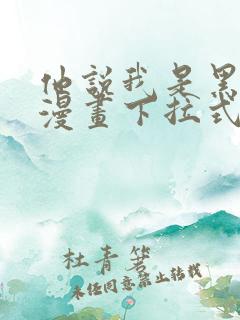 他說我是黑
漫畫下拉式
杜青箬
未经同意禁止转载